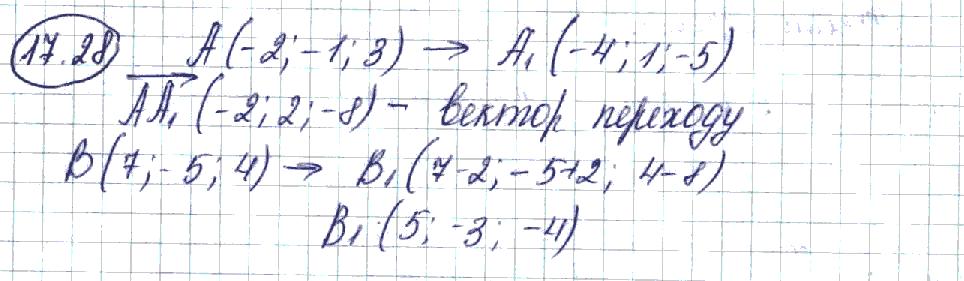 17.28 A(-2; -1; 3) → A₁(-4; 1; -5)
AA₁(-2; 2; -8) - вектор переходу
B(7; -5; 4) → B₁(7-2; -5+2; 4-8)
B₁(5; -3; -4)